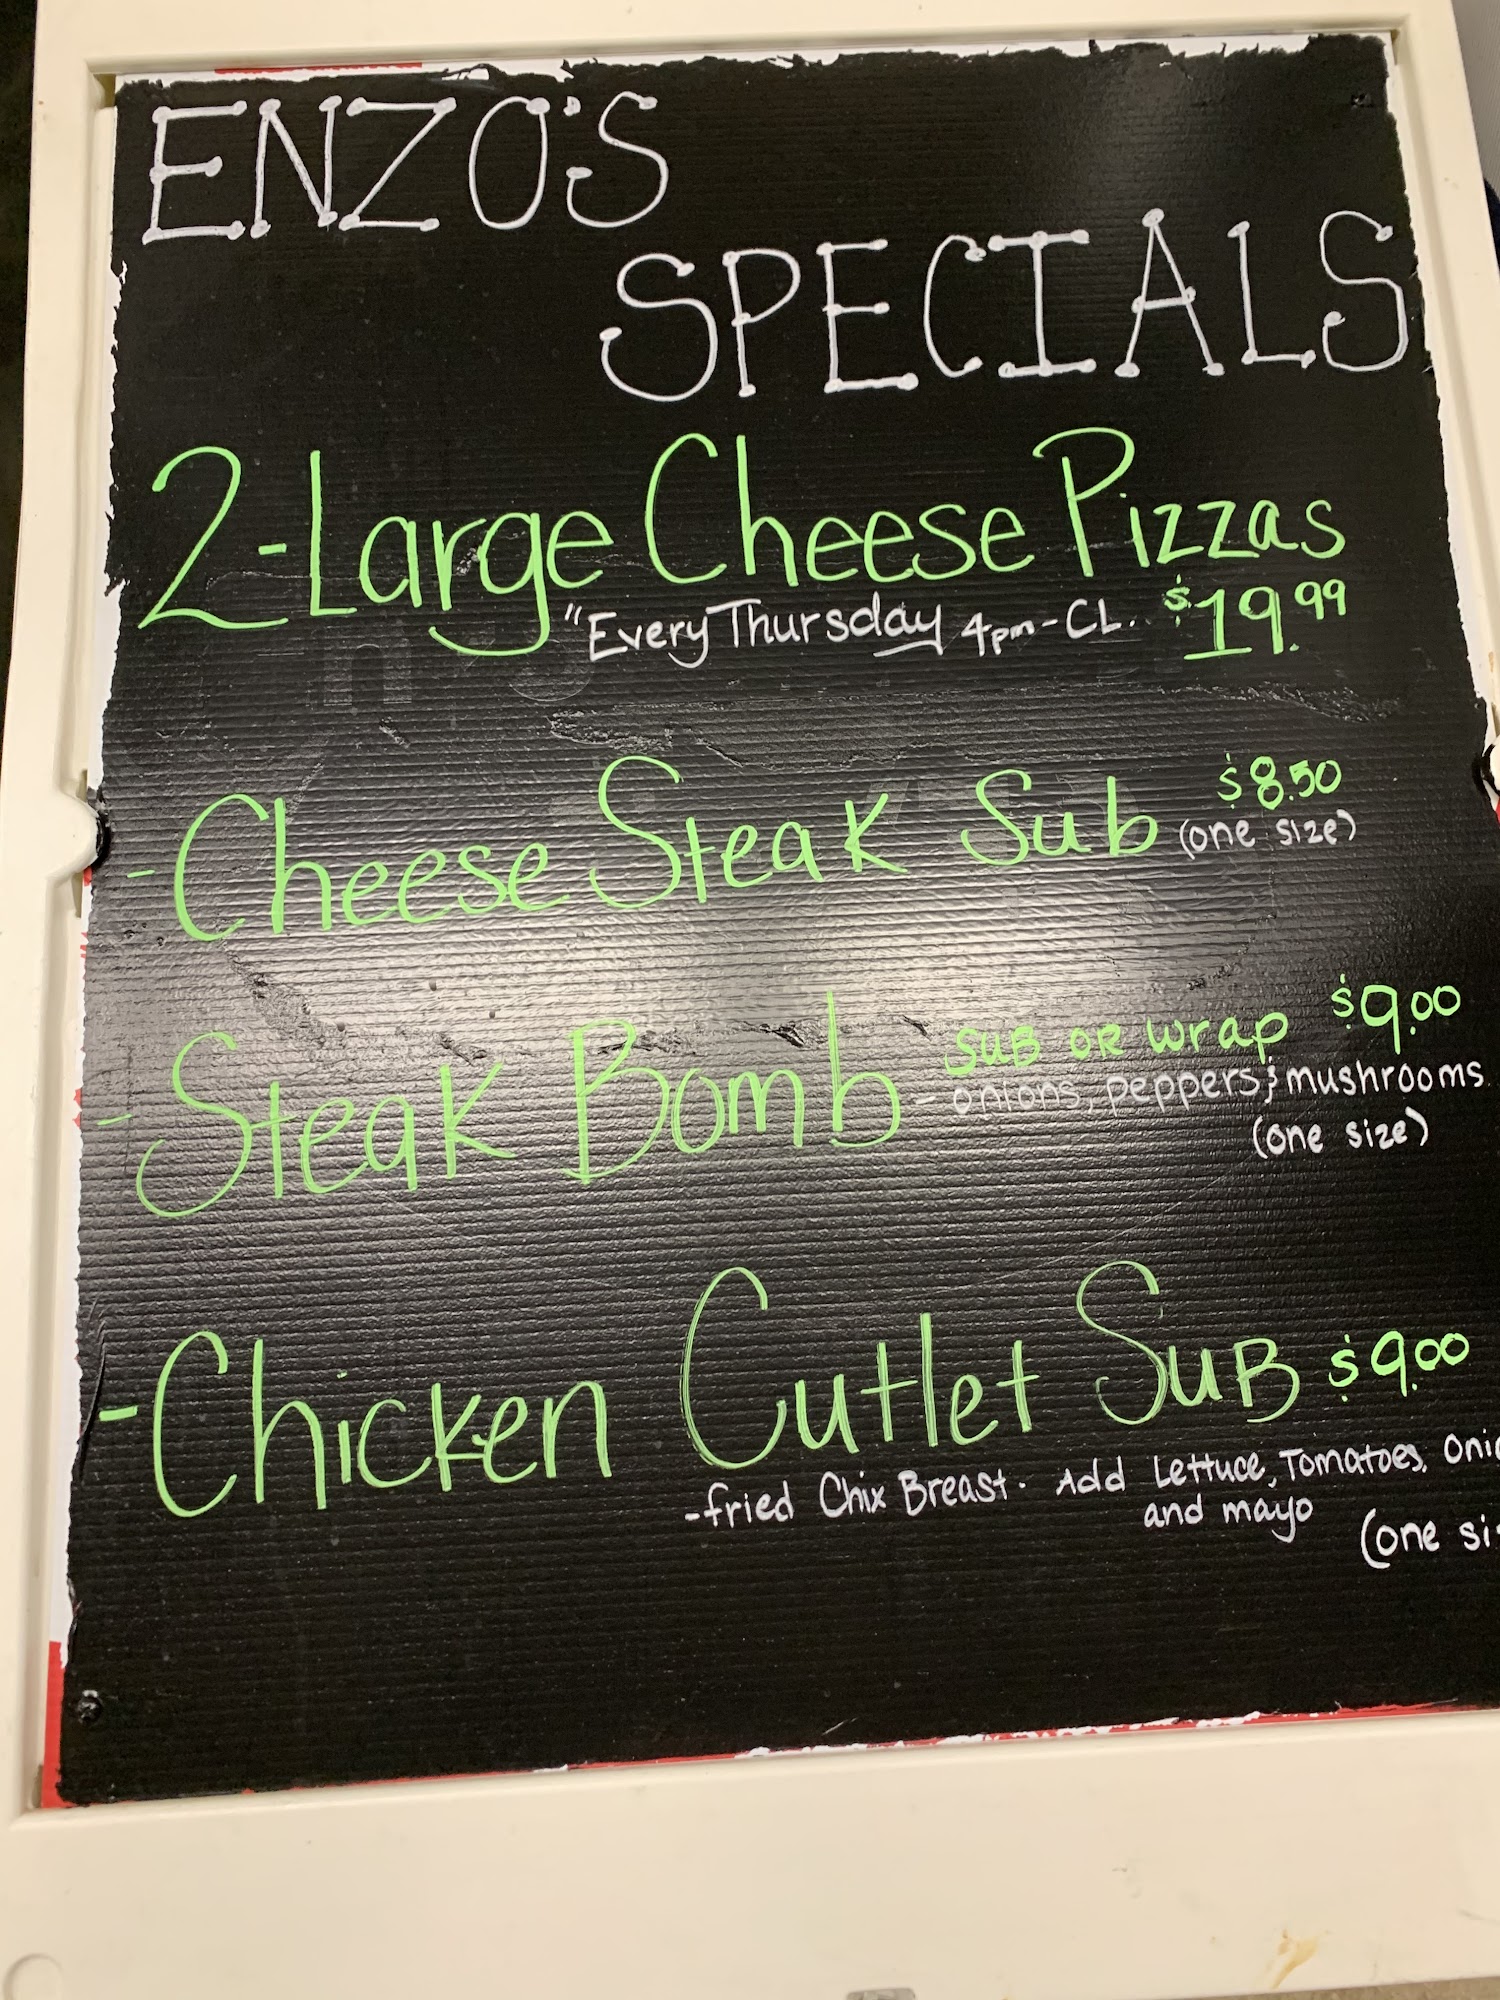 ENZO'S
SPECIALS
2-Large Cheese Pizzas
"Every Thursday 4pm-CL. $19.99
-Cheese Steak Sub $8.50
(one size)
-Steak Bomb sub or wrap $9.00
-onions, peppers, & mushrooms
(one size)
-Chicken Cutlet Sub $9.00
-fried Chix Breast. Add Lettuce, Tomatoes, Onio
and mayo
(one si